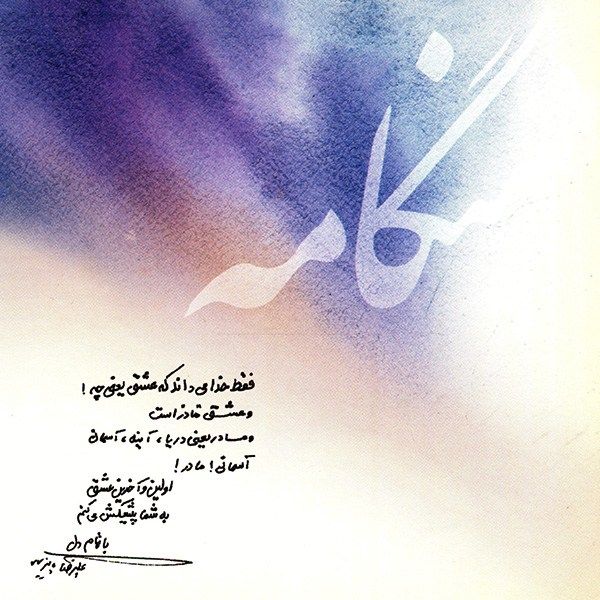 نگامه
فقط خدا می داند که عشق یعنی چه !
و عشق مادر است
و مادر یعنی دریا ، آینه ، آسمان
آسمانی ! مادر !
اولین و آخرین عشق
به شما پیشکش می کنم
با تمام دل
علیرضا